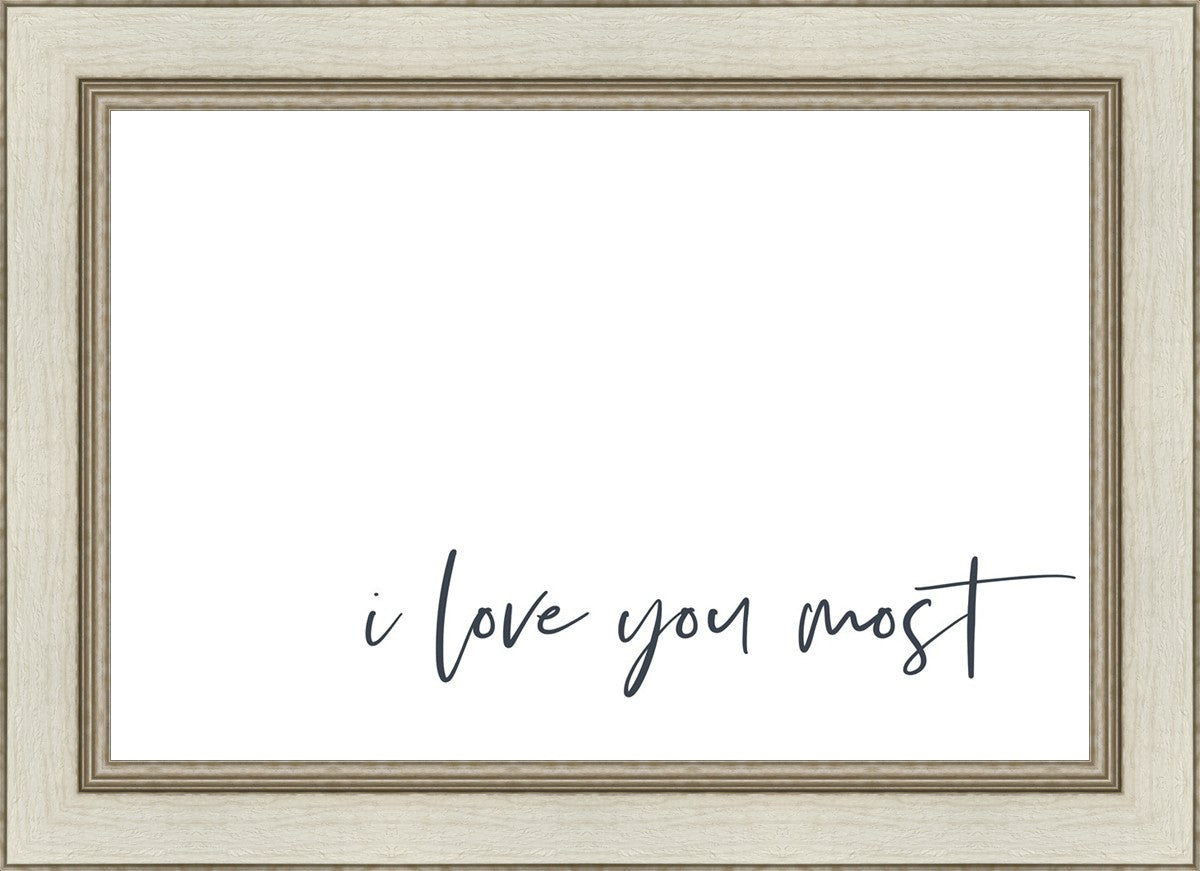 i love you most